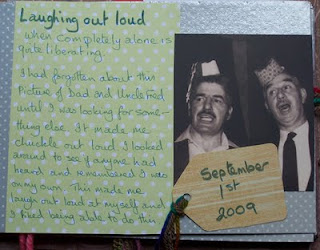 Laughing out loud
when completely alone is
quite liberating.
I had forgotten about this
Picture of Dad and Uncle Fred
until I was looking for some-
thing else. It made me
chuckle out loud. I looked
around to see if anyone had
heard and remembered I was
on my own. This made me
laugh out loud at myself and
I liked being able to do this
September
1st
2009